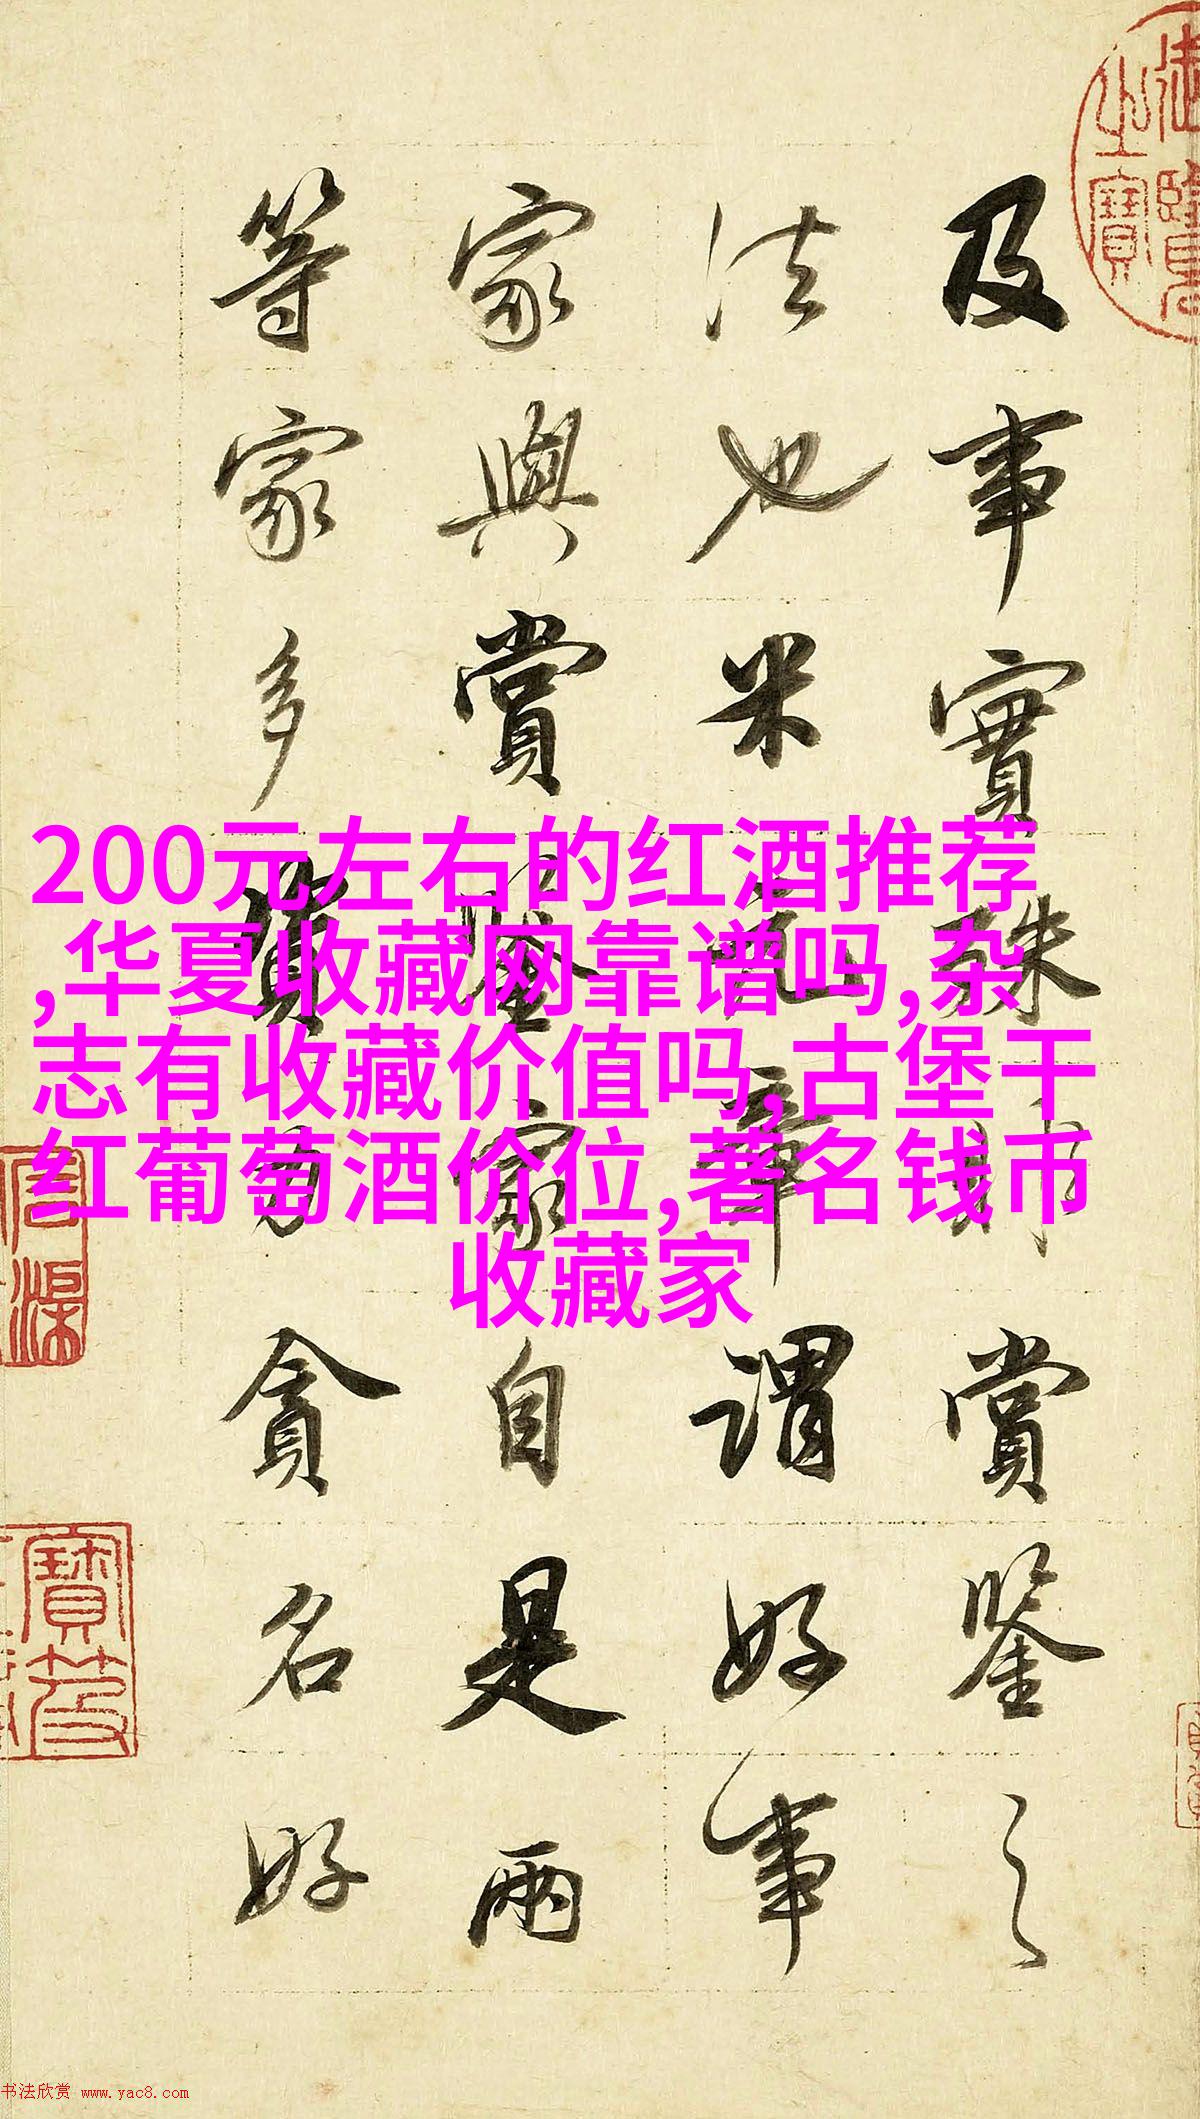 御覽之寶
及事實殊賞鑒之
法也米元章謂好事
家與賞鑒家自是兩
等家多資力貪名好
200元左右的红酒推荐
,华夏收藏网靠谱吗,杂
志有收藏价值吗,古堡干
红葡萄酒价位,著名钱币
收藏家
寶笈
书法欣赏 www.yac8.com